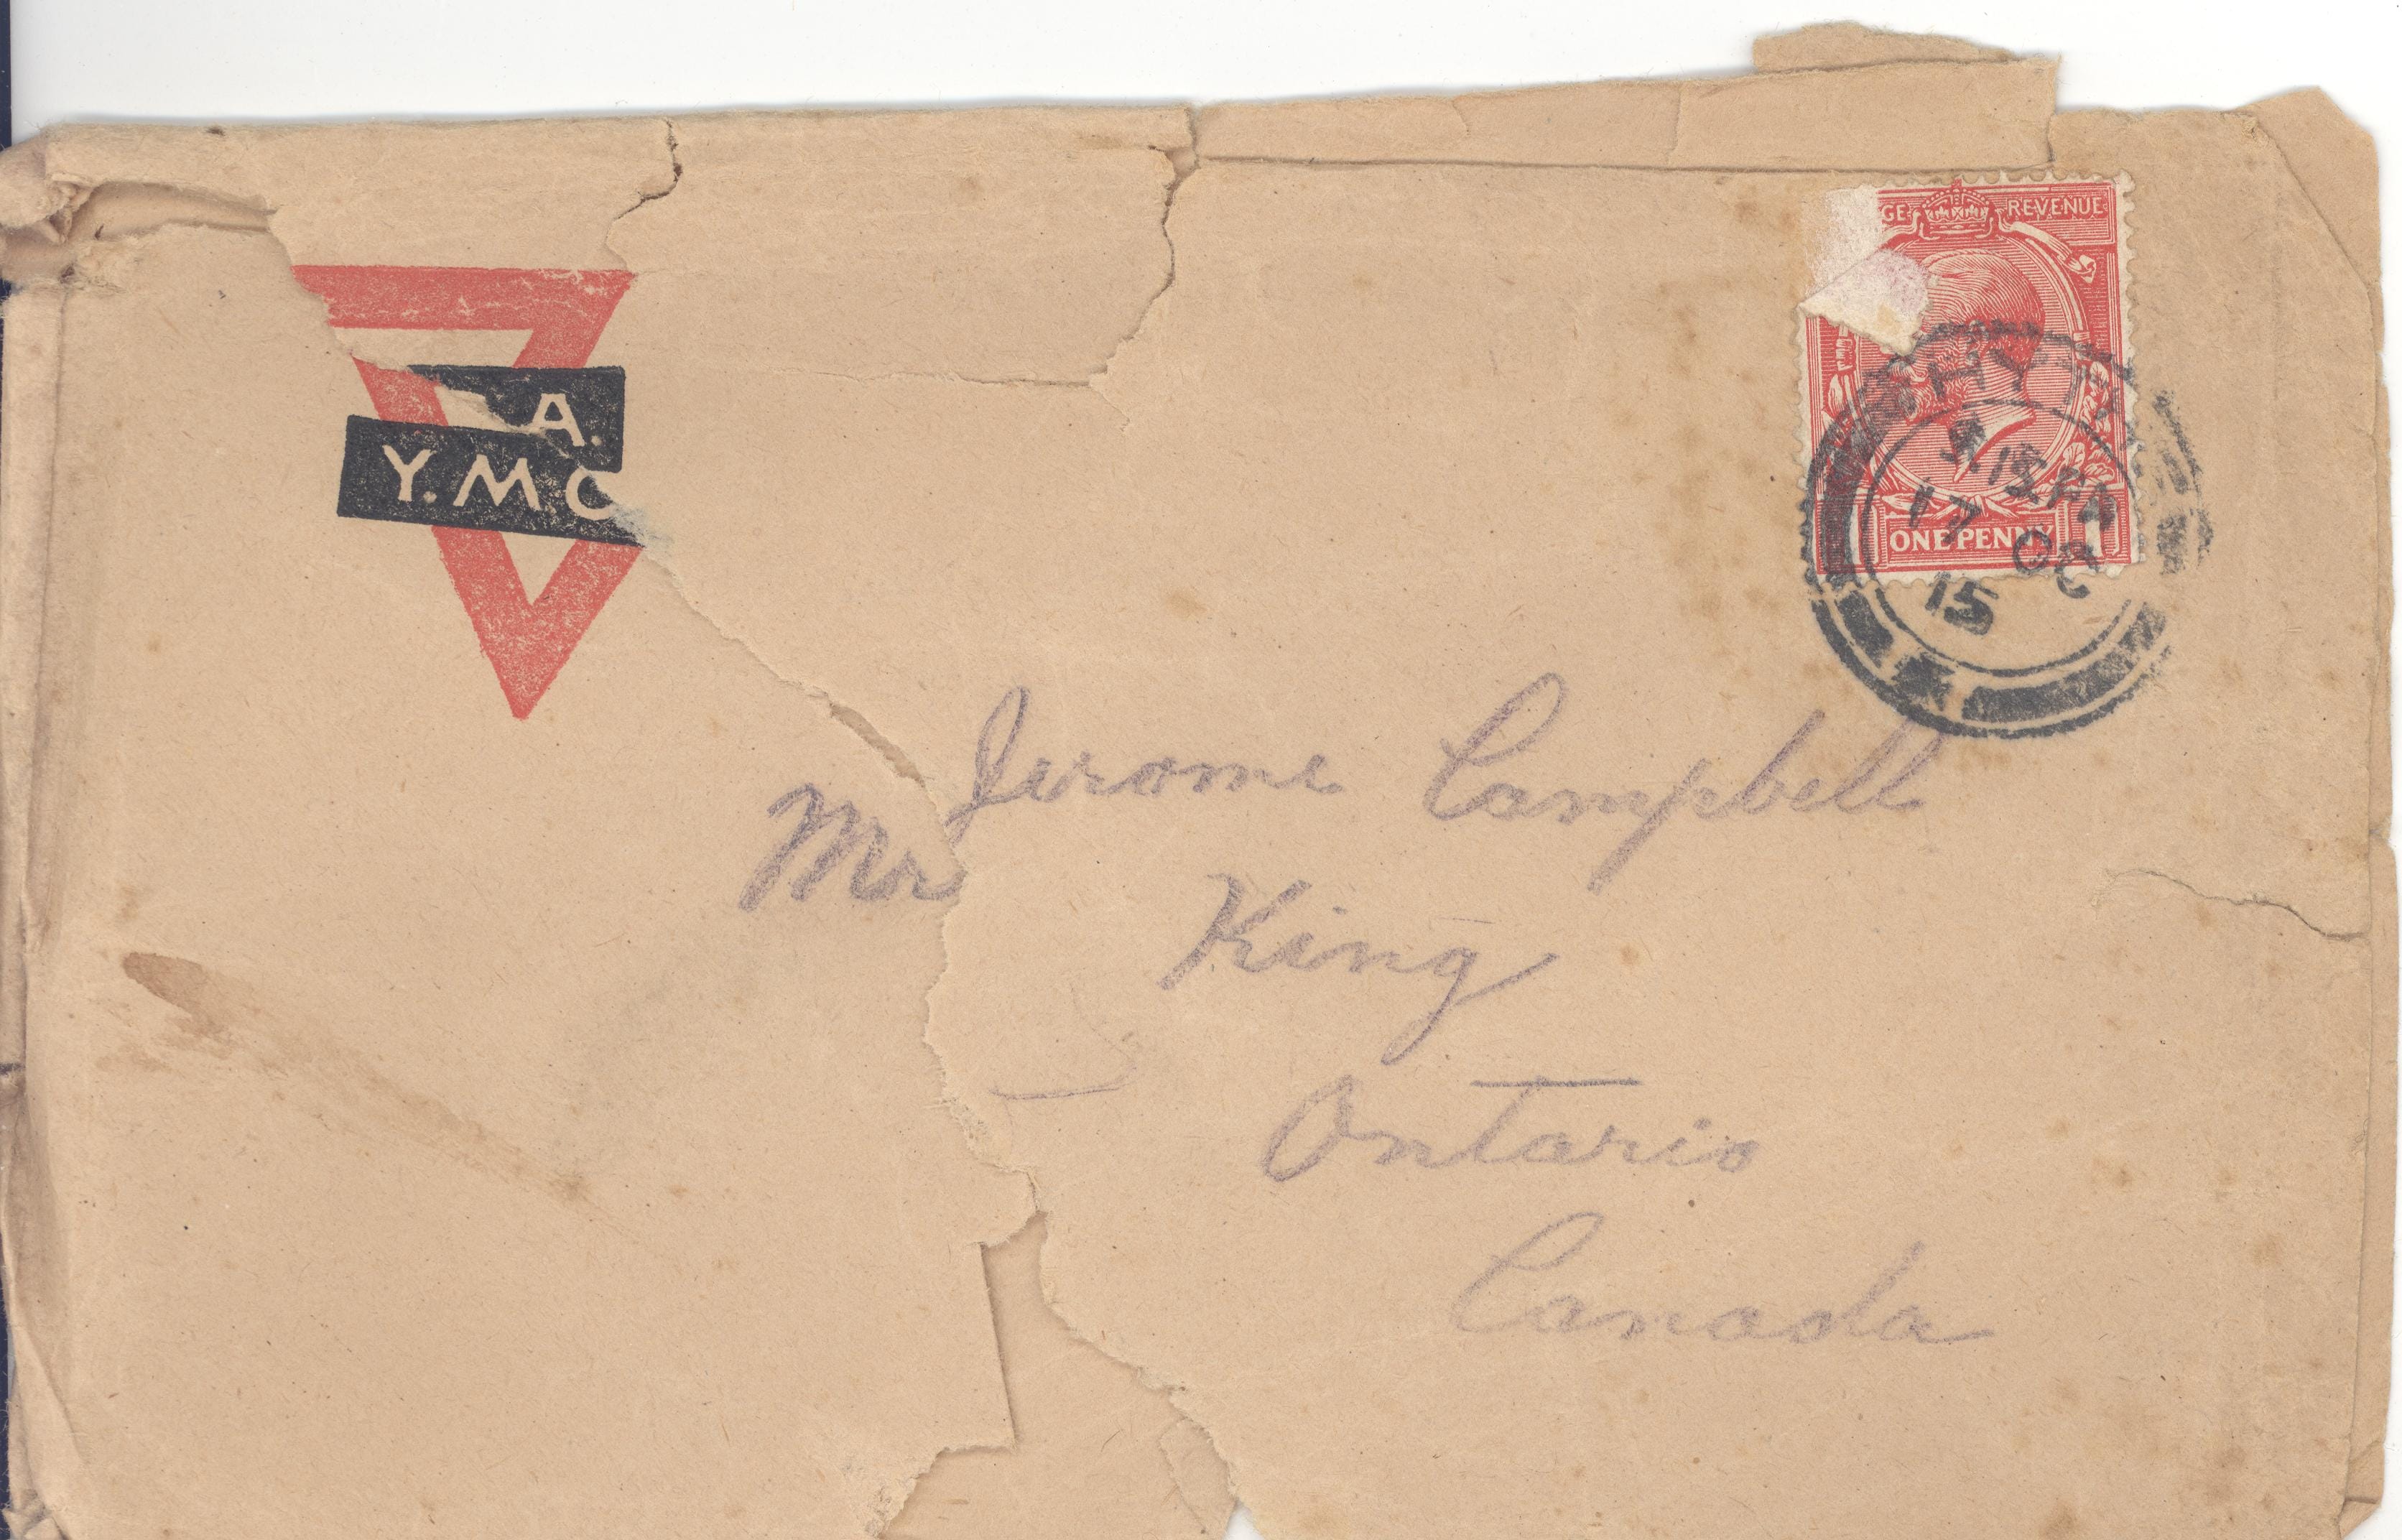 A.
Y.M.C
GE REVENUE
ONE PENNY 1
17 OC
15
Mr Jerome Campbell
King
Ontario
Canada